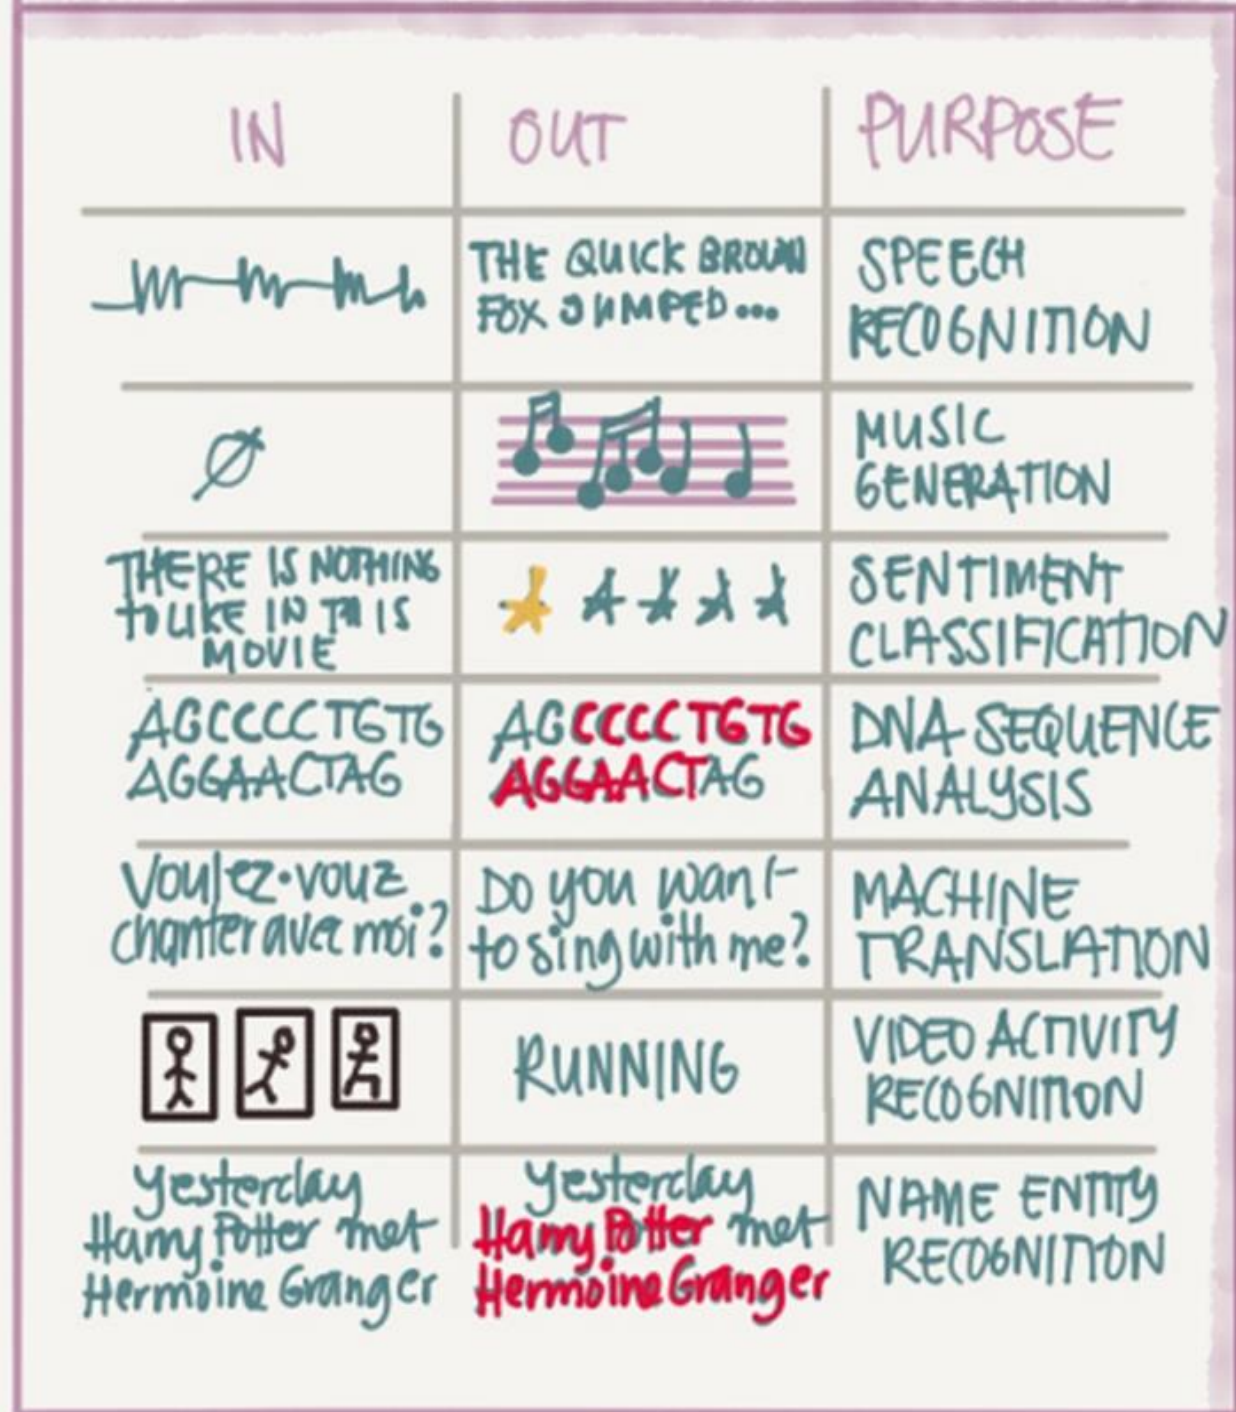 IN OUT PURPOSE
THE QUICK BROWN
FOX JUMPED...
SPEECH
RECOGNITION
Ø
MUSIC
GENERATION
THERE IS NOTHING
TO LIKE IN THIS
MOVIE
SENTIMENT
CLASSIFICATION
AGCCCCTGTG
AGGAACTAG
AGCCCCTGTG
AGGAACTAG
DNA SEQUENCE
ANALYSIS
Voulez-vouz
chanter avec moi?
Do you want
to sing with me?
MACHINE
TRANSLATION
RUNNING
VIDEO ACTIVITY
RECOGNITION
Yesterday
Harry Potter met
Hermoine Granger
Yesterday
Harry Potter met
Hermoine Granger
NAME ENTITY
RECOGNITION